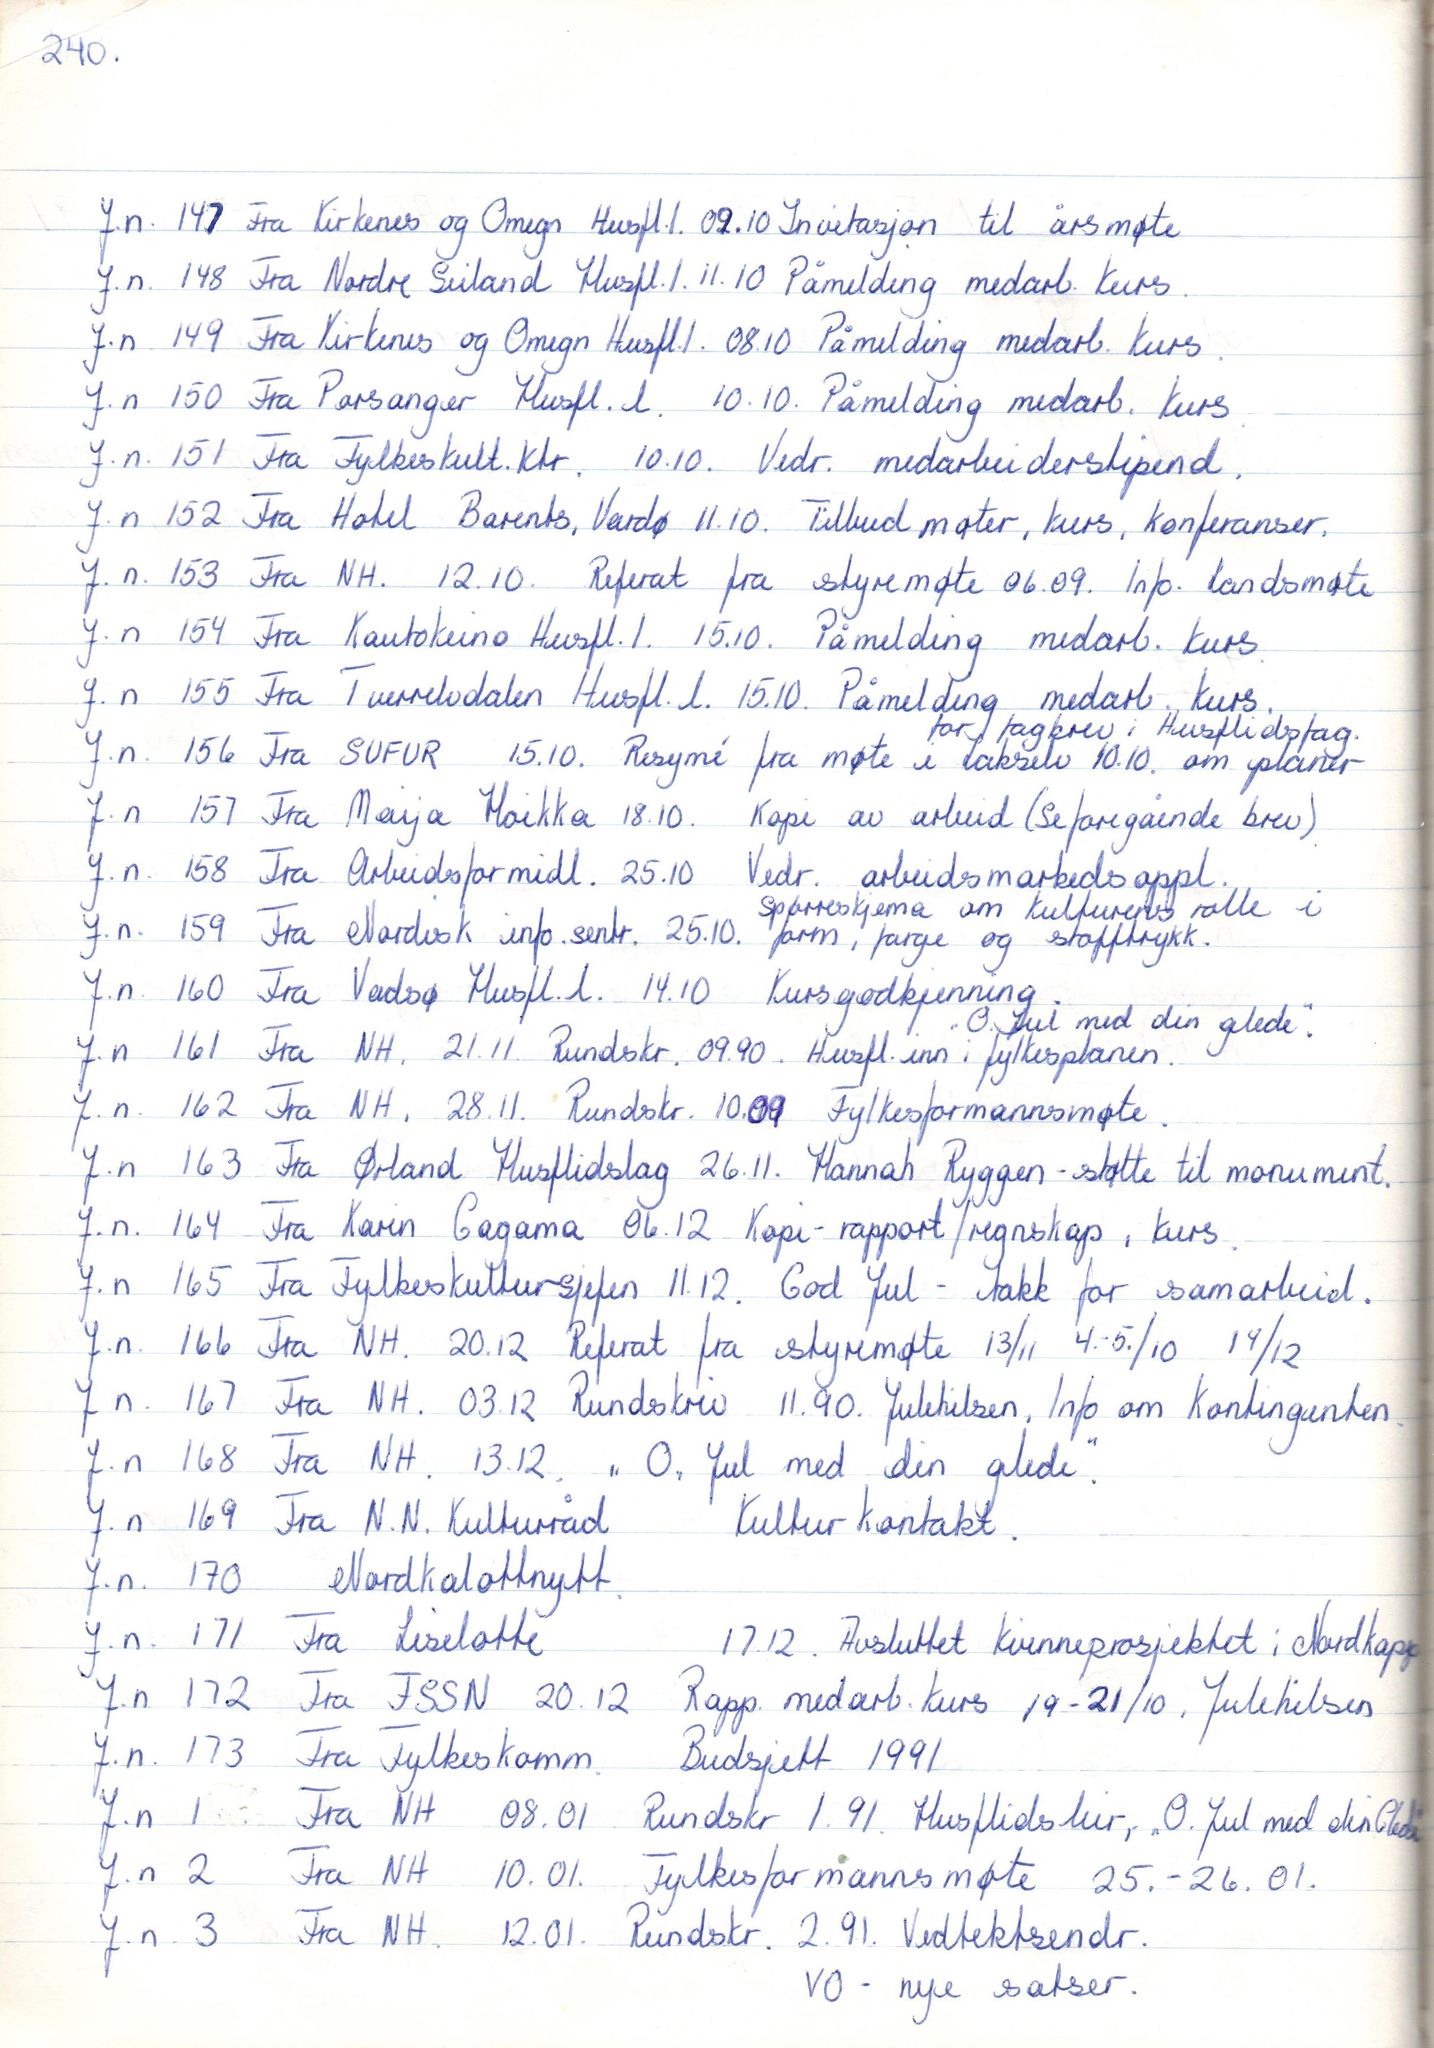 240.
J.n. 147 Fra Kirkenes og Omegn Husfl.l. 09.10 Invitasjon til årsmøte
J.n. 148 Fra Nordre Seiland Husfl.l. 11.10 Påmelding medarb. kurs.
J.n 149 Fra Kirkenes og Omegn Husfl.l. 08.10 Påmelding medarb. kurs.
J.n 150 Fra Porsanger Husfl.l. 10.10. Påmelding medarb. kurs
J.n. 151 Fra Fylkeskult.ktr. 10.10. Vedr. medarbeiderstipend.
J.n 152 Fra Hotel Barents, Vardø 11.10. Tilbud møter, kurs, konferanser.
J.n. 153 Fra NH. 12.10. Referat fra styremøte 06.09. Info. landsmøte
J.n 154 Fra Kautokeino Husfl.l. 15.10. Påmelding medarb. kurs
J.n 155 Fra Tverrelvdalen Husfl.l. 15.10. Påmelding medarb. kurs.
J.n. 156 Fra SUFUR 15.10. Resymé fra møte i Lakselv 10.10. om planer
for fagbrev i Husflidsfag.
J.n 157 Fra Maija Hoikka 18.10. Kopi av arbeid (Se foregående brev)
J.n. 158 Fra Arbeidsformidl. 25.10 Vedr. arbeidsmarkedsoppl.
J.n. 159 Fra Nordisk info.sentr. 25.10. Spørreskjema om kulturens rolle i
form, farge og stofftrykk.
J.n. 160 Fra Vadsø Husfl.l. 14.10 Kursgodkjenning.
J.n 161 Fra NH. 21.11 Rundskr. 09.90. Husfl. inn i fylkesplanen.
"O. Jul med din glede".
J.n. 162 Fra NH. 28.11. Rundskr. 10.09 Fylkesformannsmøte.
J.n 163 Fra Ørland Husflidslag 26.11. Hannah Ryggen - støtte til monument.
J.n. 164 Fra Karin Gagama 06.12 Kopi - rapport/regnskap, kurs.
J.n 165 Fra Fylkeskultursjefen 11.12. God Jul - takk for samarbeid.
J.n. 166 Fra NH. 20.12 Referat fra styremøte 13/11 4.-5./10 14/12
J n. 167 Fra NH. 03.12 Rundskriv 11.90. Julehilsen, Info om Kontingenten.
J.n 168 Fra NH. 13.12. "O, Jul med din glede".
J.n 169 Fra N.N. Kulturråd Kultur kontakt.
J.n. 170 Nordkalottnytt.
J.n. 171 Fra Liselotte 17.12. Avsluttet kvinneprosjektet i Nordkapp
J.n 172 Fra FSSN 20.12 Rapp. medarb. kurs 19-21/10. Julehilsen
J.n. 173 Fra Fylkeskomm. Budsjett 1991
J.n 1 Fra NH 08.01 Rundskr 1.91. Husflidsleir, "O. Jul med din Glede"
J.n 2 Fra NH 10.01. Fylkesformannsmøte 25.-26.01.
J.n. 3 Fra NH. 12.01. Rundskr. 2.91. Vedtektsendr.
VO - nye satser.